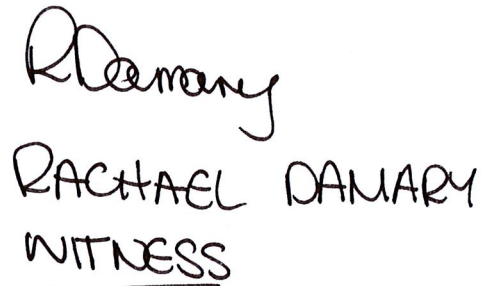 RDamary
RACHAEL DAMARY
WITNESS